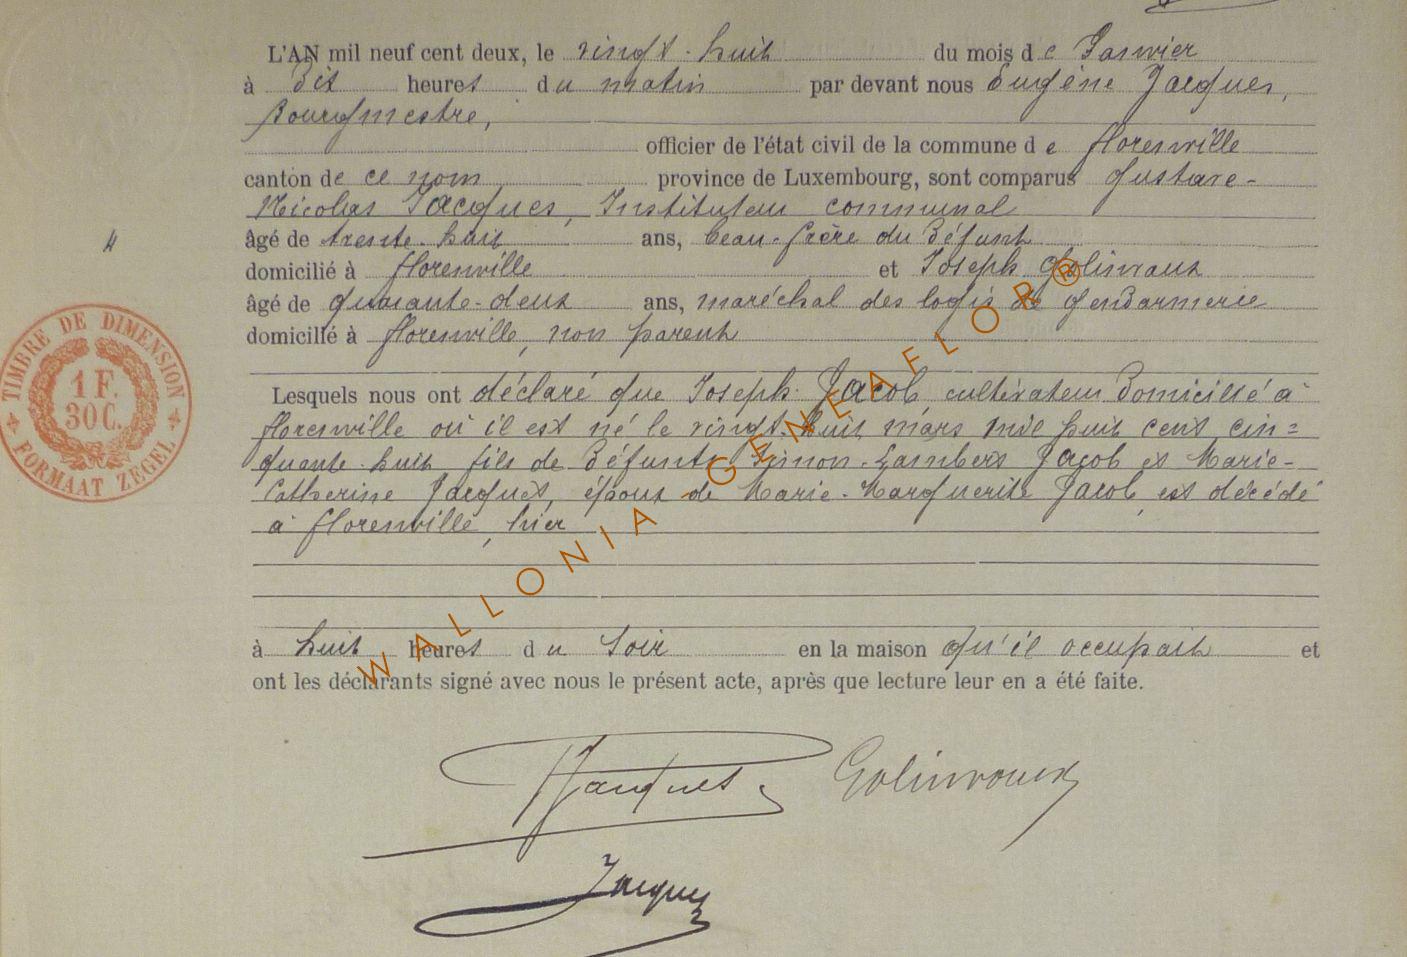 L'AN mil neuf cent deux, le vingt-huit du mois de Janvier
à Dix heures du matin par devant nous Eugène Jacques,
Bourgmestre,
officier de l'état civil de la commune de Florenville
canton de ce nom province de Luxembourg, sont comparus Gustave-
Nicolas Jacques, Instituteur communal
âgé de trente-huit ans, beau-frère du Défunt
4
domicilié à Florenville et Joseph Golinvaux
âgé de quarante-deux ans, maréchal des logis de gendarmerie
domicilié à Florenville, non parent
Lesquels nous ont déclaré que Joseph Jacob, cultivateur Domicilié à
Florenville où il est né le vingt-huit mars mil huit cent cin=
quante-huit fils de Défunts Simon-Lambert Jacob et Marie-
Catherine Jacques, époux de Marie-Marguerite Jacob, est décédé
à Florenville, hier
à huit heures du Soir en la maison qu'il occupait et
ont les déclarants signé avec nous le présent acte, après que lecture leur en a été faite.
Jacques Golinvaux
Jacques
TIMBRE DE DIMENSION
1 F.
30 C.
FORMAAT ZEGEL
WALLONIA-GENEAFLOR®